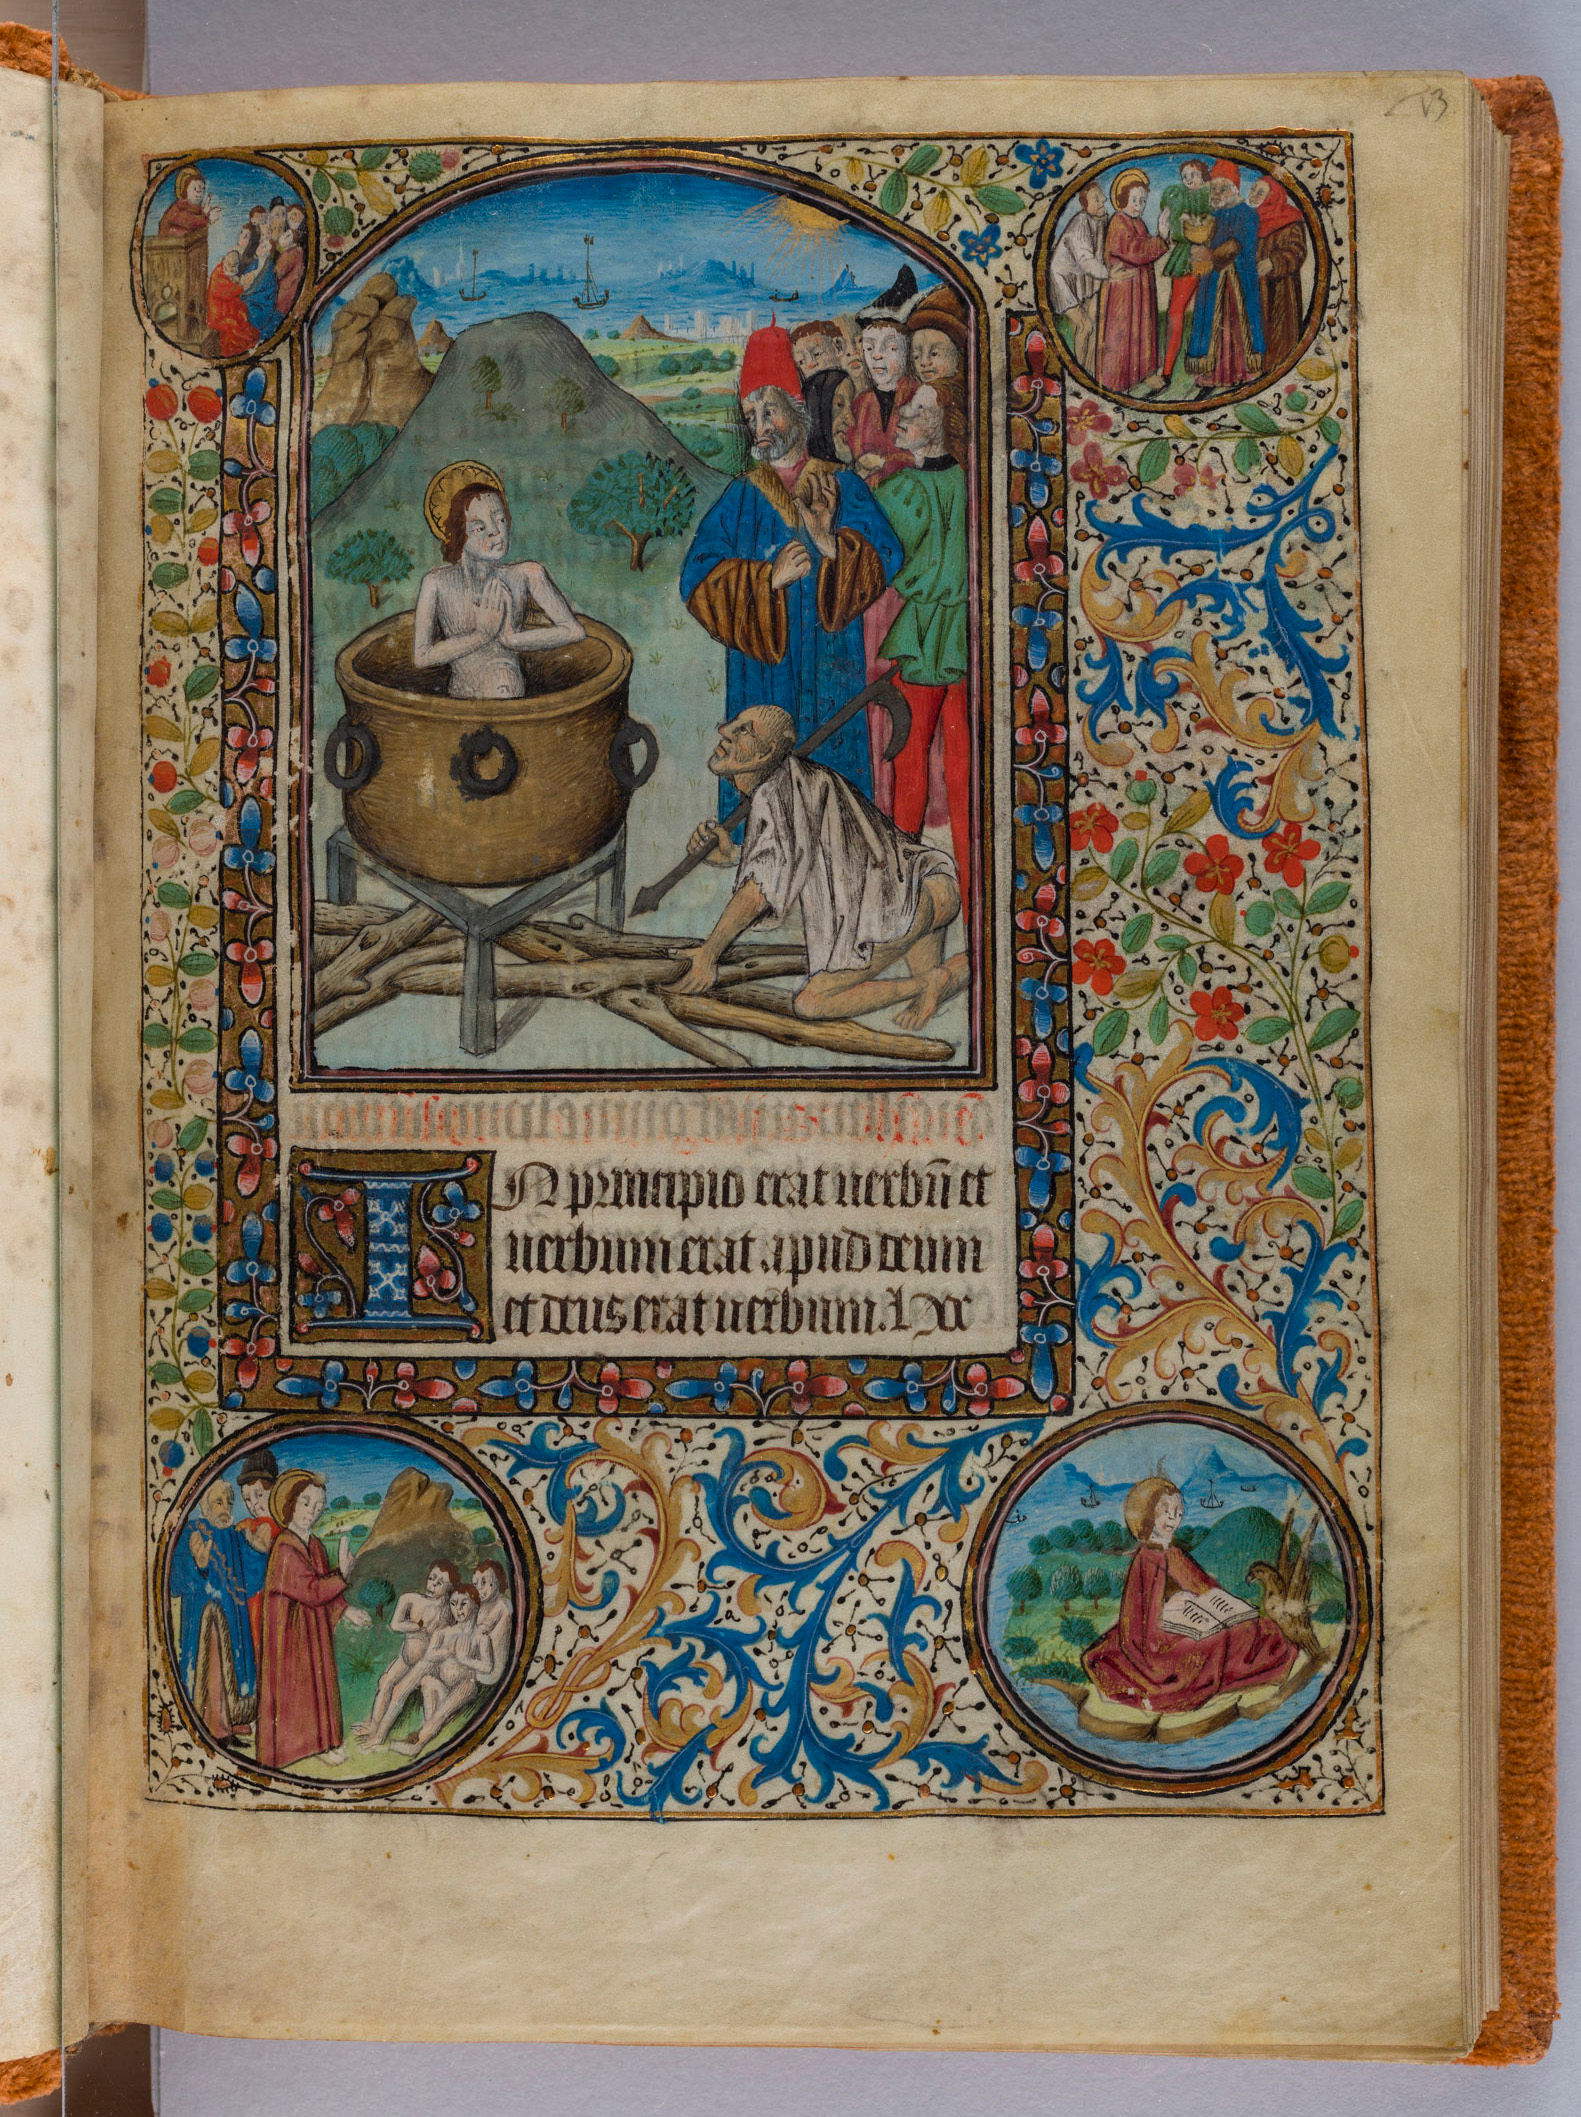 13
IN principio erat uerbū et
uerbum erat apud deum
et deus erat uerbum.